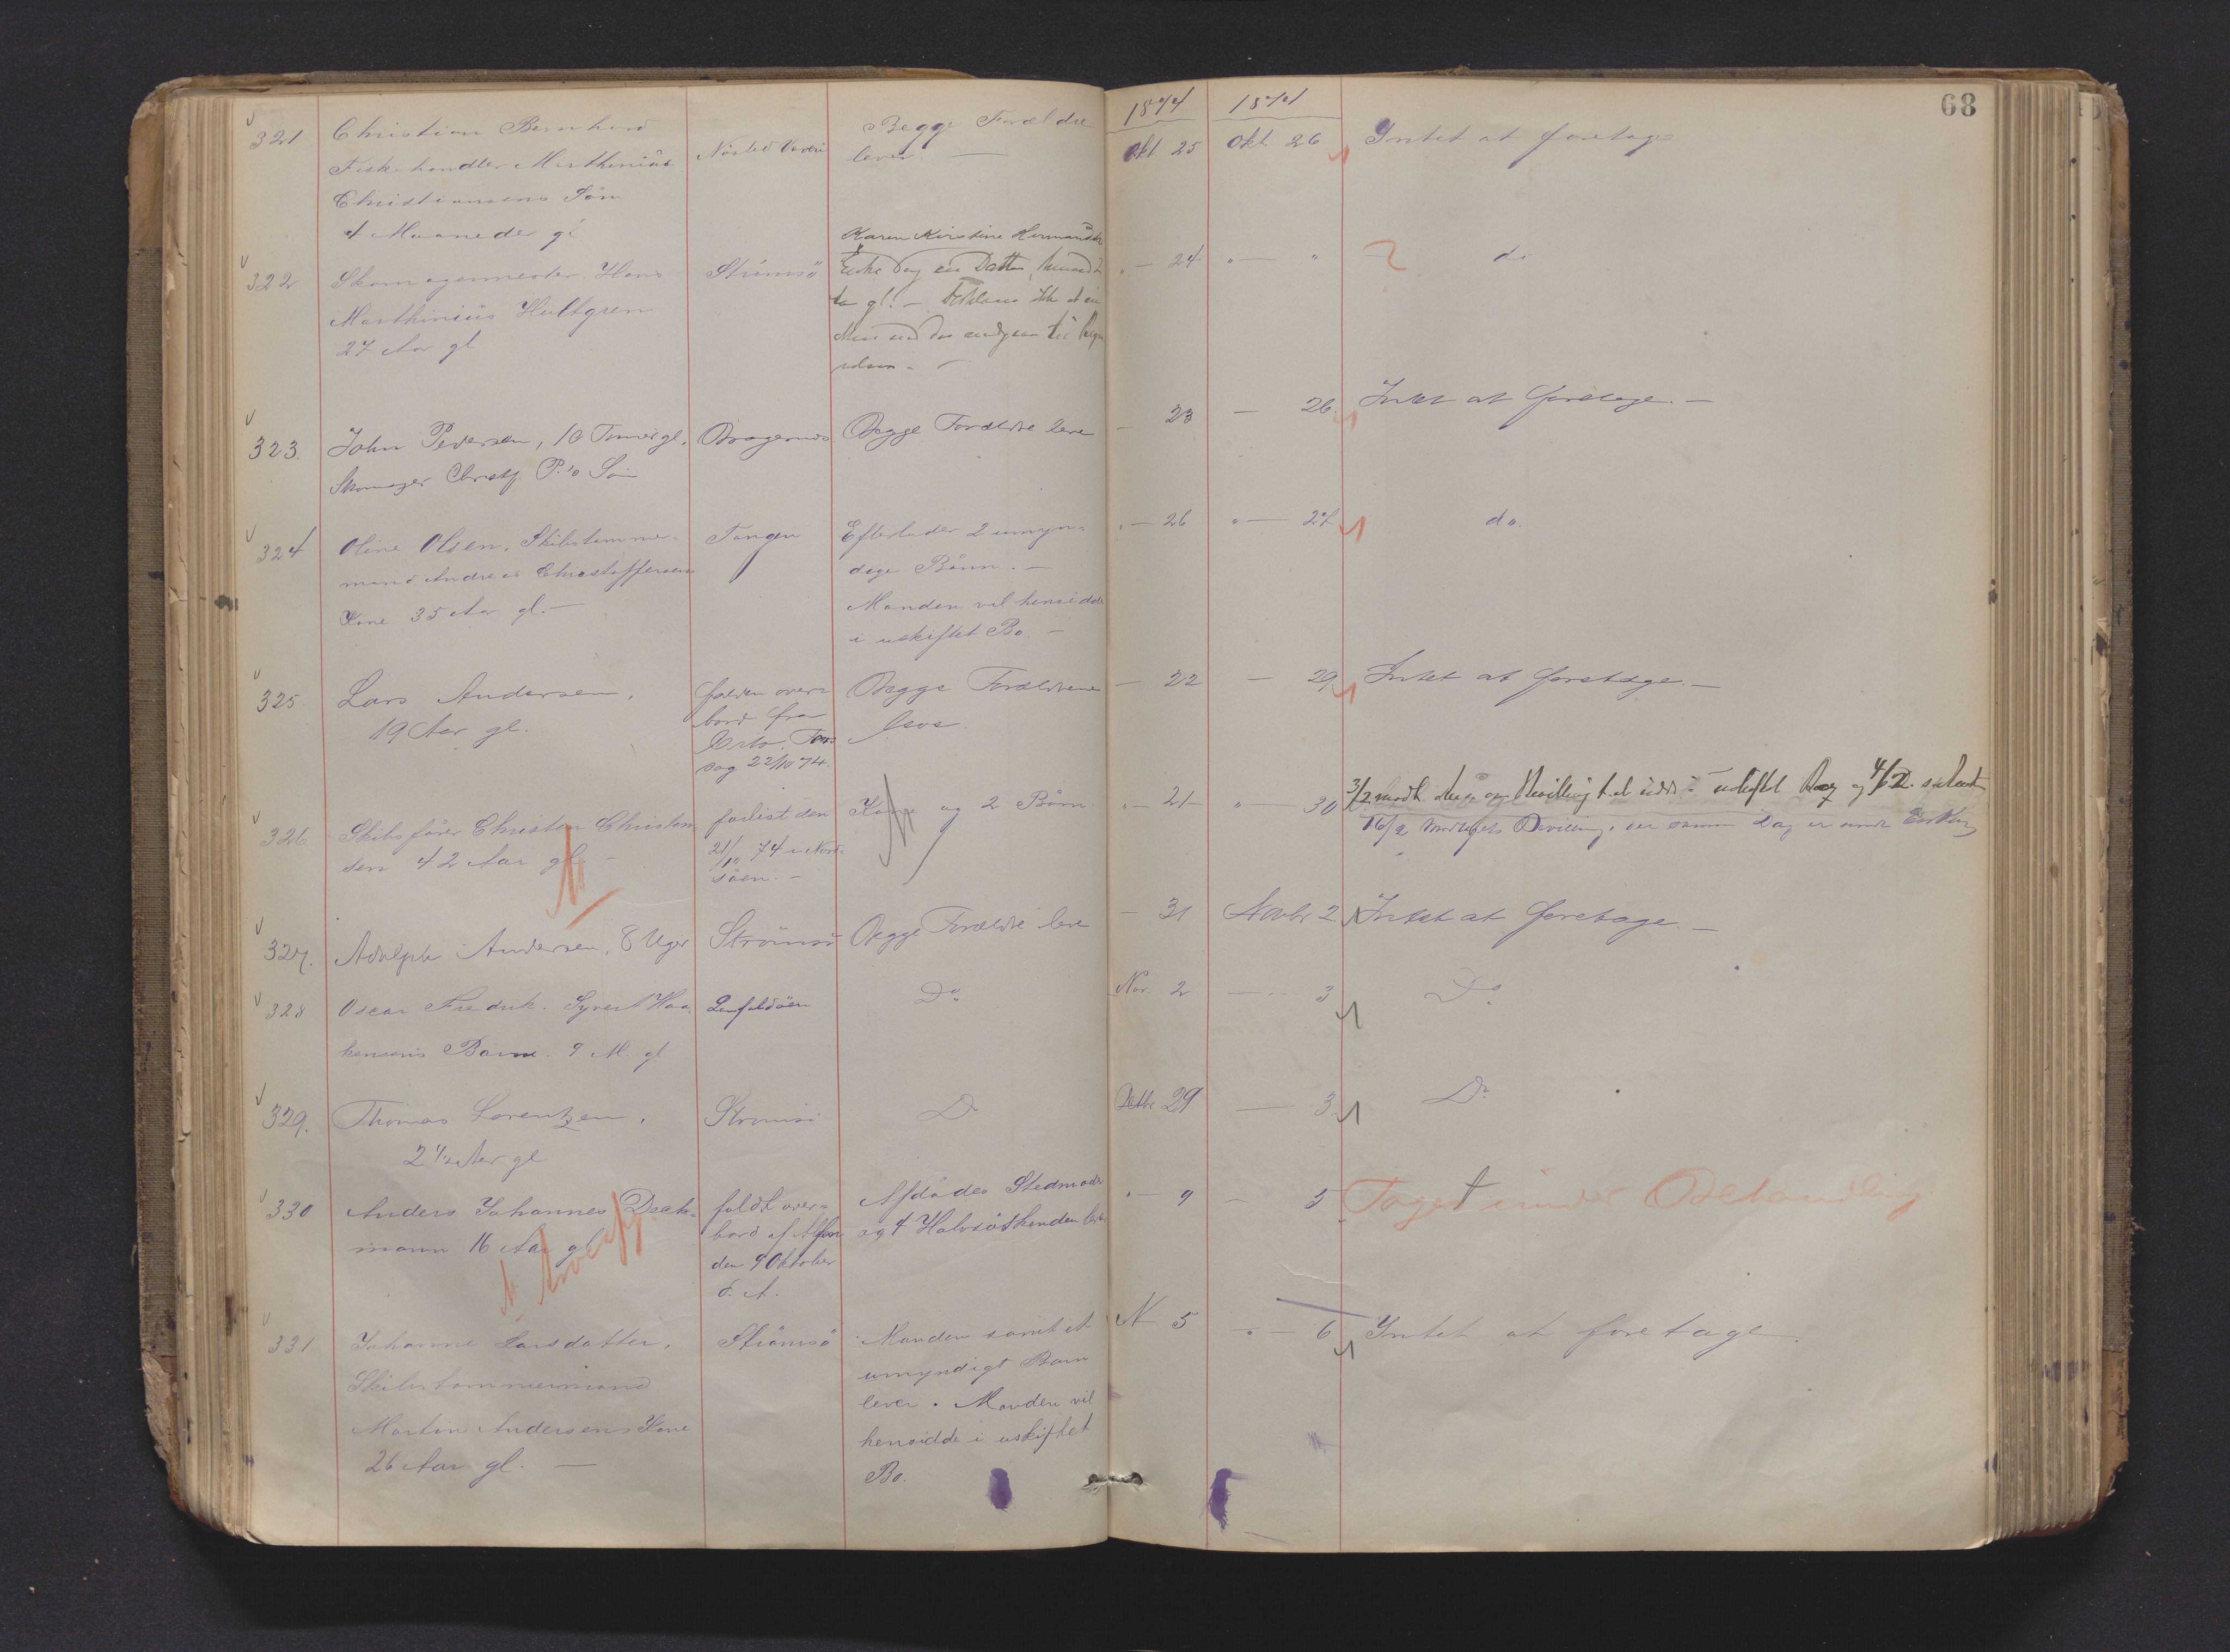 68
1874 1874
321 Christian Bernhard
Fiskehandler Marthinius
Christiansens Søn
4 Maaneder gl
Begge Forældre
lever. —
Okt 25 Okt. 26 Intet at foretage
322 Skomagermester Hans
Marthinius Hultgren
27 Aar gl
Strömsö
Karen Kirstine
Enke og en Datter
— 24 " — " do
323. John Pedersen, 10 Timer gl.
Skomager Christ. P.'s Søn
Bragernes
Begge Forældre leve
— 23 — 26. Intet at foretage. —
324 Oline Olsen, Skibstømme-
mand Andreas Christoffersens
Kone 35 Aar gl. —
Tangen
Efterlader 2 umyn-
dige Børn. —
Manden vil hensidde
i uskiftet Bo. —
" — 26 " — 27 do.
325. Lars Andersen,
19 Aar gl.
falden over
bord fra
22/10 74.
Begge Forældrene
leve.
— 22 — 29. Intet at foretage. —
326 Skibsfører Christen Christen
sen 42 Aar gl. —
forlist den
21/10 74 i Nord-
søen. —
Kone og 2 Børn.
" — 21 " — 30
327. Adolph Andersen, 8 Uger
Strömsö
Begge Forældre leve
— 31 Novbr 2. Intet at foretage. —
328 Oscar Fredrik. Syvert Haa-
kensens Barn. 9 M. gl
Do
Nov. 2 — 3 Do
329. Thomas Lorentzen,
2 1/2 Aar gl
Strömsö
Do
Octbr 29 — 3. Do
330 Anders Johannes Dech-
mann 16 Aar gl
faldt over-
bord af
den 9 Oktober
d. A.
Afdødes Stedmoder
og 4 Halvsøskenden lever
" — 9 — 5 Taget under Behandling
331 Johanne Larsdatter,
Skibstømmermand
Martin Andersens Kone
26 Aar gl. —
Strömsö
Manden samt et
umyndigt Barn
lever. Manden vil
hensidde i uskiftet
Bo.
N 5 " — 6 Intet at foretage.